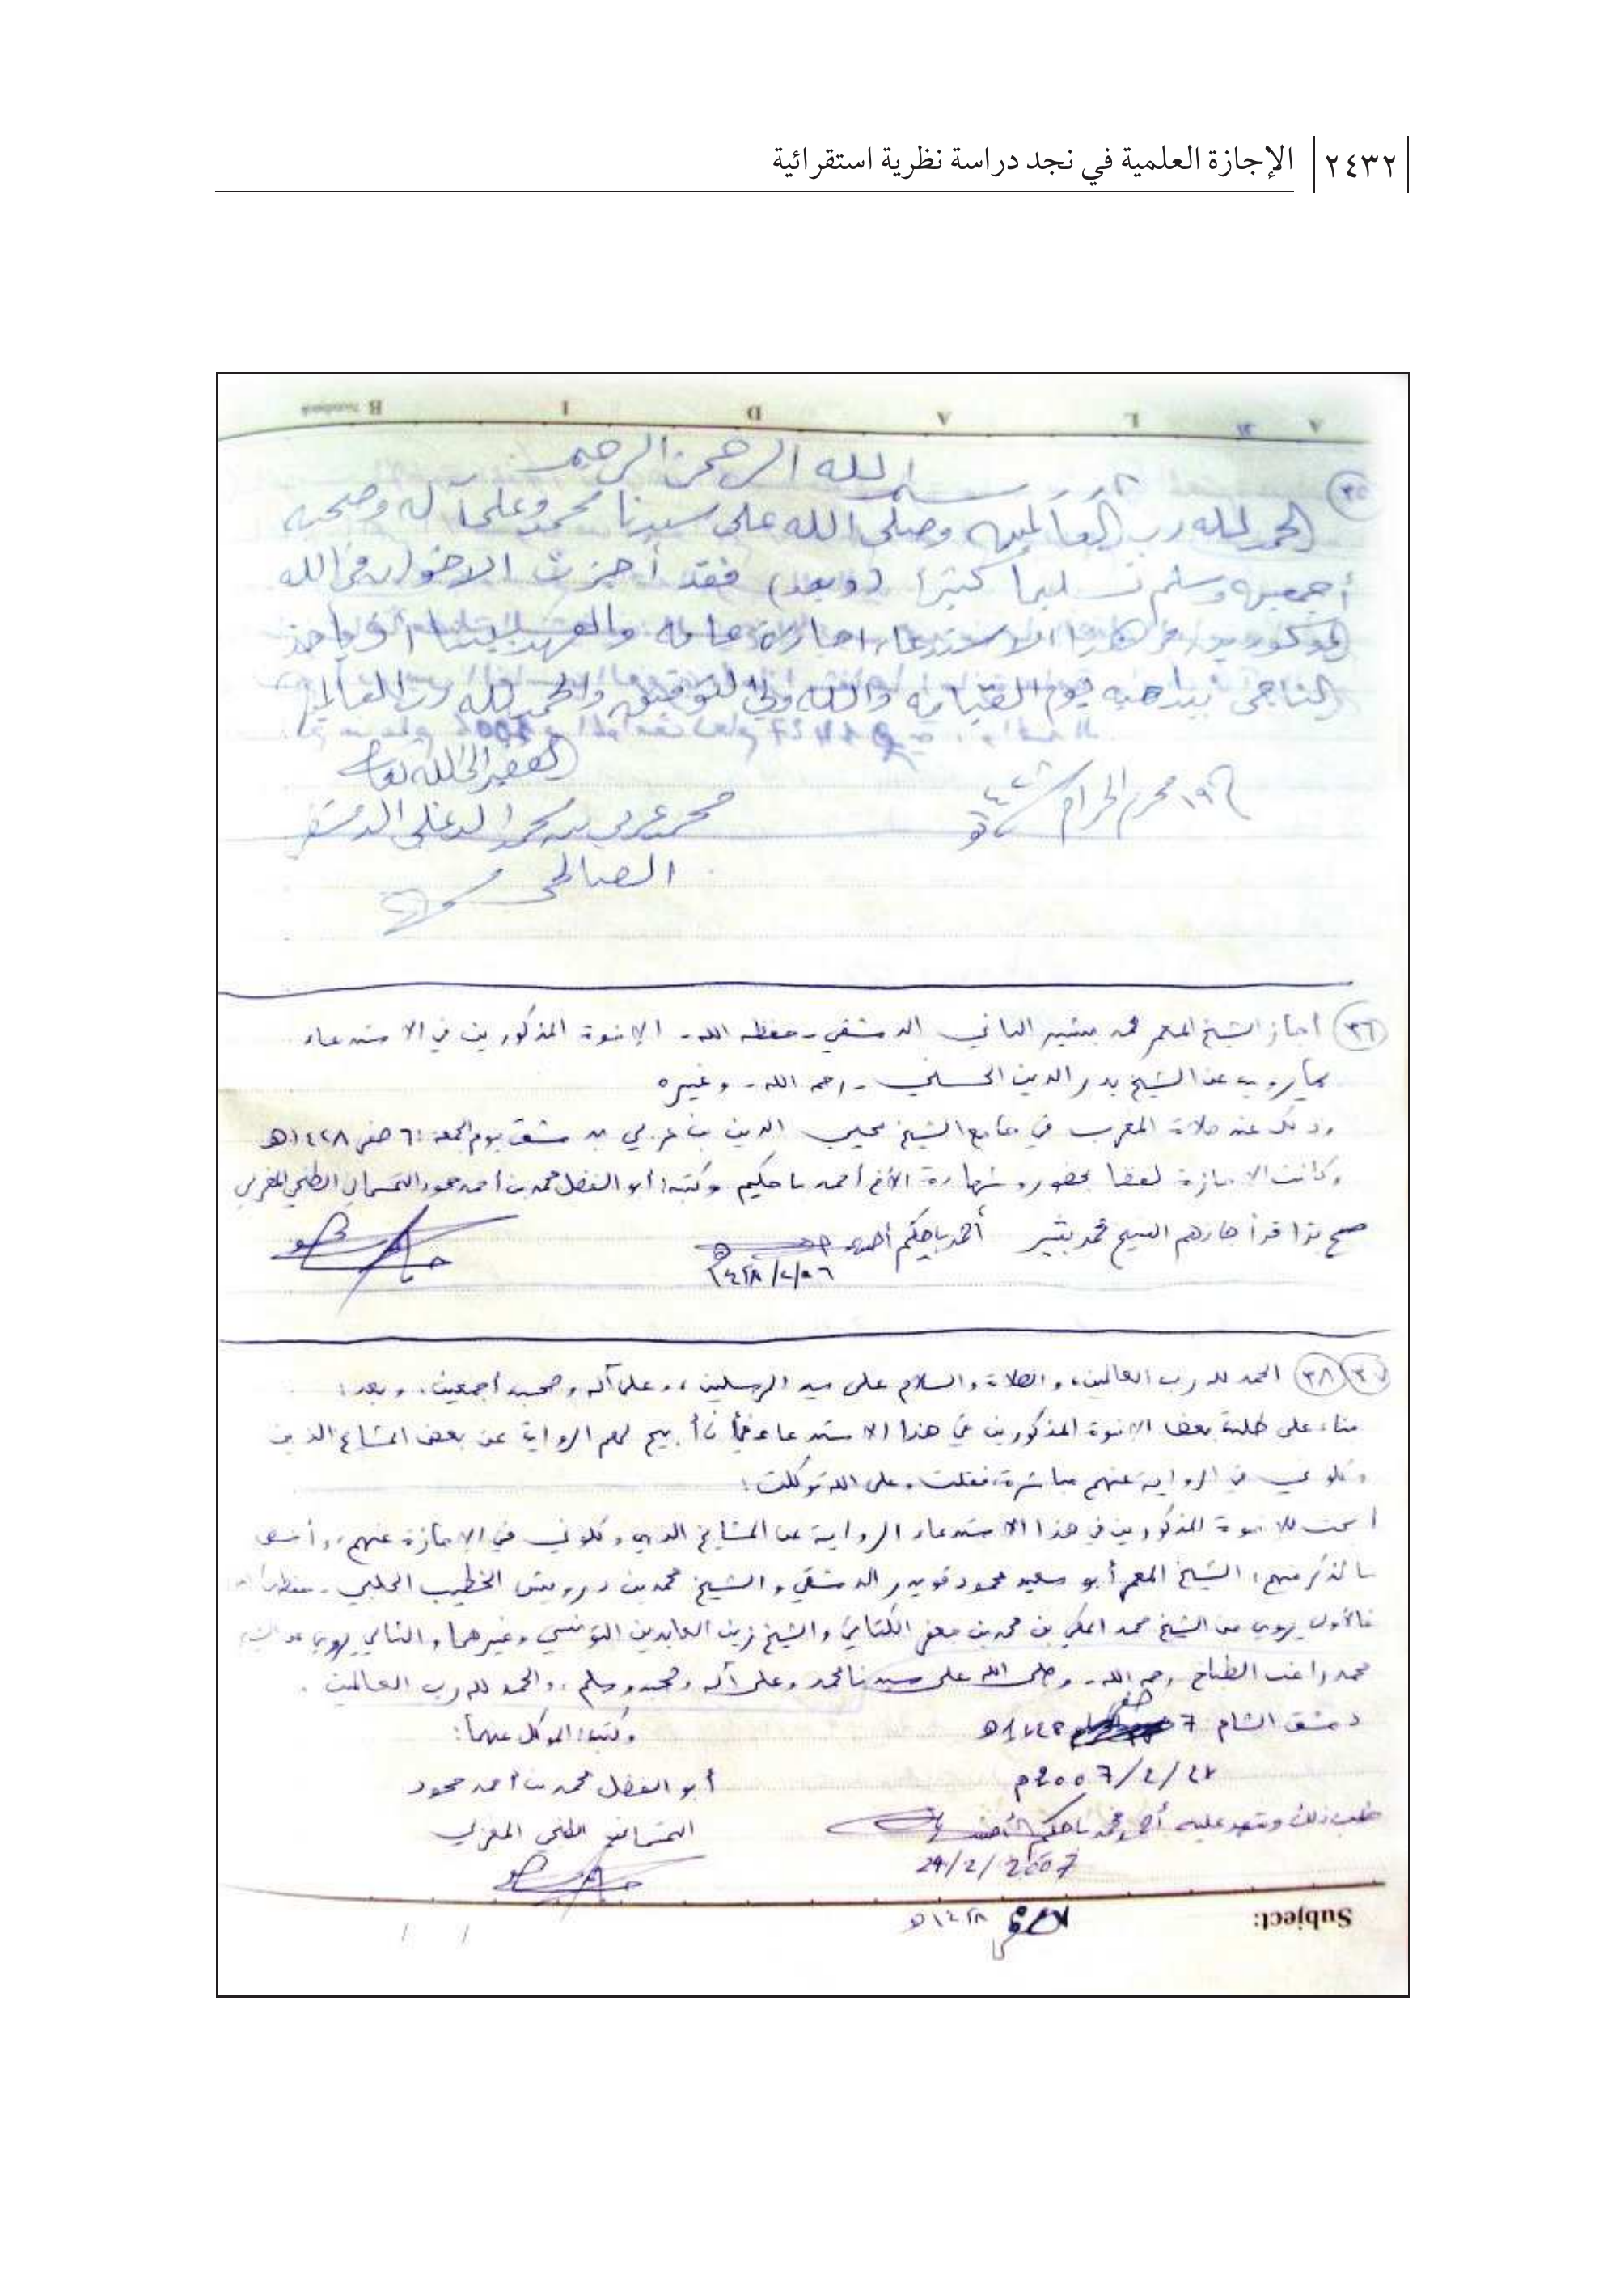 ٢٤٣٢ الإجازة العلمية في نجد دراسة نظرية استقرائية
٣٥
بسم الله الرحمن الرحيم
الحمد لله رب العالمين وصلى الله على سيدنا محمد وعلى آله وصحبه
أجمعين وسلم تسليما كثيرا (وبعد) فقد أجزت الاخوان في الله
المذكورين في هذا الاستدعاء اجازة عامة والعهد بيننا أن يأخذ
الناجي بيد أخيه يوم القيامة والله ولي التوفيق والحمد لله رب العالمين
الفقير إلى الله تعالى
١٩ محرم الحرام
محمد عربي بن محمد الدغلي الدمشقي
الصالحي
٣٦ أجاز الشيخ المعمر محمد بشير الباني الدمشقي - حفظه الله - الإخوة المذكورين في الاستدعاء
بما يرويه عن الشيخ بدر الدين الحسني - رحمه الله - وغيره
وذلك عند صلاة المغرب في جامع الشيخ محيي الدين بن عربي بدمشق يوم الجمعة: ٦ صفر ١٤٢٨ه
وكانت الإجازة لفظا بحضور وشهادة الأخ أحمد باحكيم وكتبه: أبو الفضل محمد بن أحمد محمود التمسماني الطنجي المغربي
صح هذا قد أجازهم الشيخ محمد بشير أحمد باحكيم
١٤٢٨/٢/٠٦
٣٧ ٣٨ الحمد لله رب العالمين، والصلاة والسلام على سيد المرسلين، وعلى آله وصحبه أجمعين، وبعد:
بناء على طلب بعض الإخوة المذكورين في هذا الاستدعاء أن أبيح لهم الرواية عن بعض المشايخ الذين
وكلوني في الرواية عنهم مباشرة، فقلت وعلى الله توكلت:
أبحت للإخوة المذكورين في هذا الاستدعاء الرواية عن المشايخ الذين وكلوني في الإجازة عنهم، وأخص
بالذكر منهم: الشيخ المعمر أبو سعيد محمود قويدر الدمشقي والشيخ محمد بن درويش الخطيب الحلبي - حفظهما الله
فالأول يروي عن الشيخ محمد المكي بن محمد بن جعفر الكتاني والشيخ زين العابدين التونسي وغيرهما والثاني يروي عن الشيخ
محمد راغب الطباخ رحمه الله - وصلى الله على سيدنا محمد وعلى آله وصحبه وسلم، والحمد لله رب العالمين.
دمشق الشام: 7 صفر
وكتبه: الموكل عنهما:
2007/2/24م
أبو الفضل محمد بن أحمد محمود
التمسماني الطنجي المغربي
طلب ذلك وشهد عليه أحمد محمد باحكيم
24/2/2007
Subject:
١٤٢٨ه